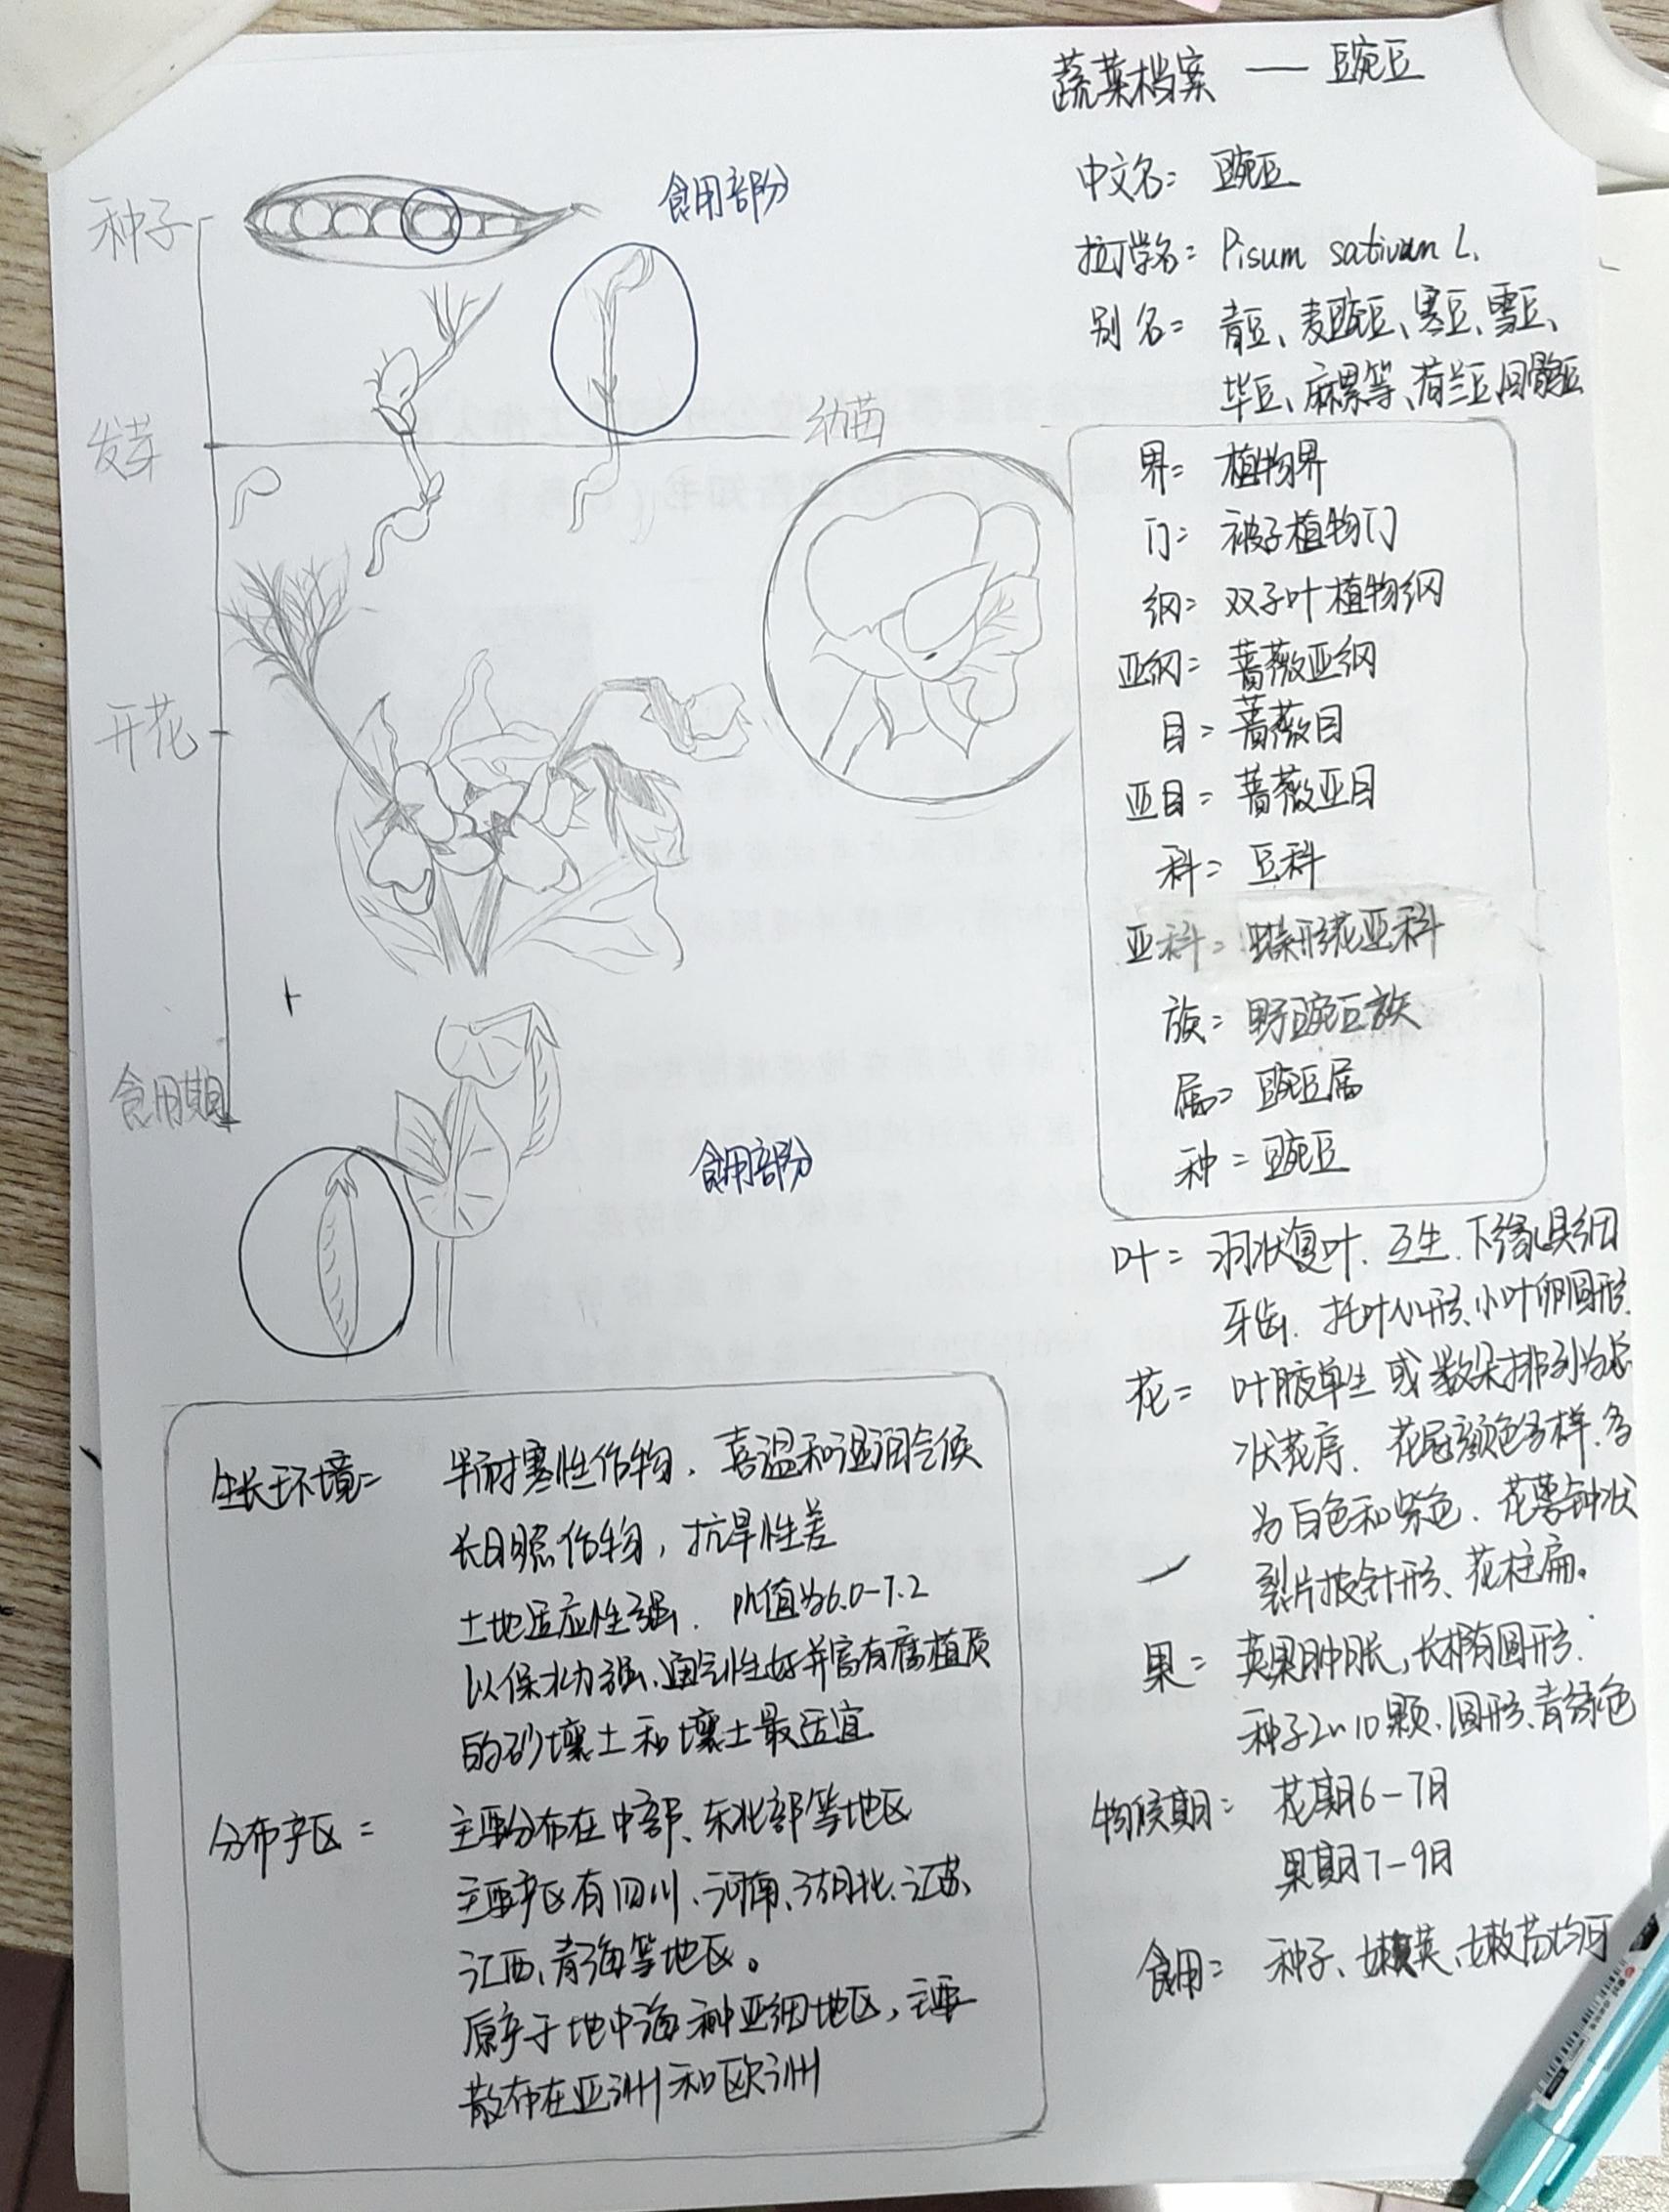 蔬菜档案 — 豌豆
中文名: 豌豆
拉丁学名: Pisum sativum L.
别名: 青豆、麦豌豆、寒豆、雪豆、
毕豆、麻累等、荷兰豆、回鹘豆
界: 植物界
门: 被子植物门
纲: 双子叶植物纲
亚纲: 蔷薇亚纲
目: 蔷薇目
亚目: 蔷薇亚目
科: 豆科
亚科: 蝶形花亚科
族: 野豌豆族
属: 豌豆属
种: 豌豆
叶: 羽状复叶. 互生. 下缘具细
牙齿. 托叶心形、小叶卵圆形.
花: 叶腋单生或数朵排列为总
状花序. 花冠颜色多样.多
为白色和紫色. 花萼钟状
裂片披针形、花柱扁。
果: 荚果肿胀,长椭圆形.
种子2~10颗、圆形、青绿色
物候期: 花期6-7月
果期7-9月
食用: 种子、嫩荚、嫩苗均可
种子
食用部分
发芽
幼苗
开花
食用期
食用部分
生长环境: 半耐寒性作物. 喜温和湿润气候
长日照作物, 抗旱性差
土地适应性强. PH值为6.0-7.2
以保水力强、通气性好并富有腐植质
的砂壤土和壤土最适宜
分布产区: 主要分布在中部、东北部等地区
主要产区有四川、河南、湖北、江苏、
江西、青海等地区。
原产于地中海和中亚细地区, 主要
散布在亚洲和欧洲